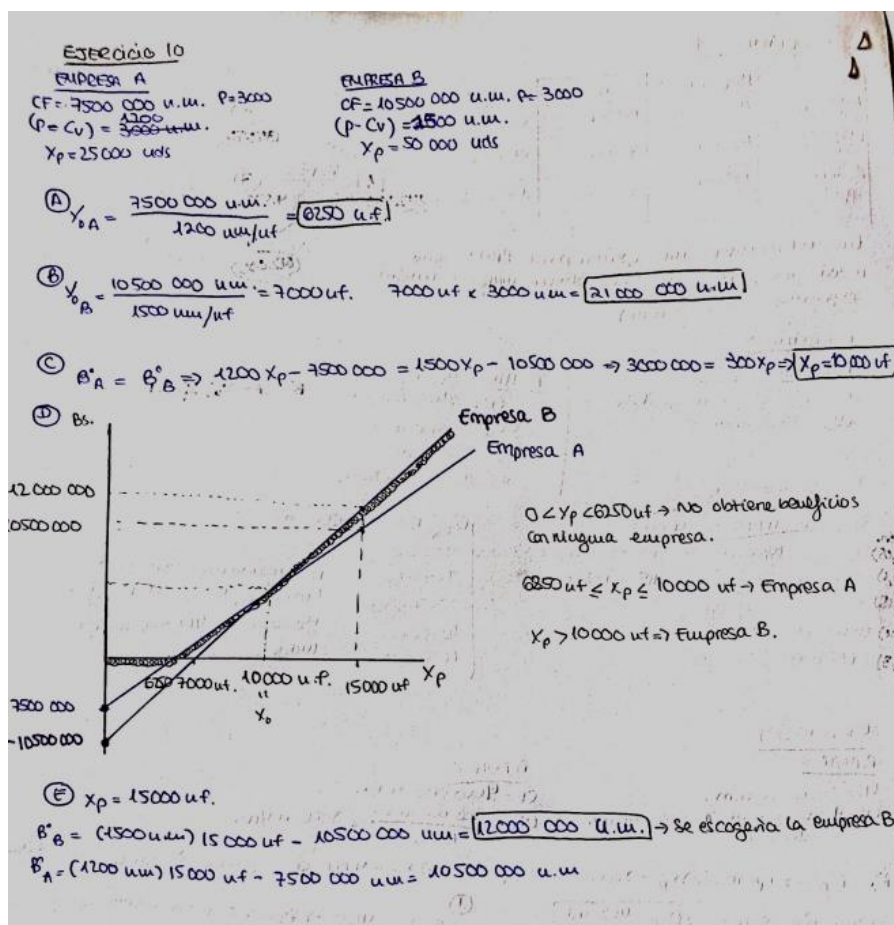 EJERCICIO 10
EMPRESA A
CF = 7500 000 u.m. P=3000
1200
(P = Cv) = 3000 u.m.
Xp = 25000 uds
EMPRESA B
CF = 10500 000 u.m. P= 3000
(p- Cv) = 1500 u.m.
Xp = 50 000 uds
A X₀A = 7500 000 u.m. / 1200 um/uf = 6250 u.f.
B X₀B = 10500 000 um / 1500 um/uf = 7000 uf. 7000 uf x 3000 um = 21 000 000 u.m
C B°A = B°B => 1200 Xp - 7500 000 = 1500 Xp - 10500 000 => 3000 000 = 300 Xp => Xp = 10 000 uf
D Bs.
Empresa B
Empresa A
12 000 000
0500 000
0 < Xp < 6250 uf → No obtiene beneficios
con ninguna empresa.
6850 uf ≤ Xp ≤ 10000 uf → Empresa A
Xp > 10000 uf => Empresa B.
7000 uf. 10000 u.f. 15000 uf Xp
"
X₀
7500 000
-10500 000
E Xp = 15000 uf.
B°B = (1500 um) 15 000 uf - 10500 000 um = 12000 000 u.m. → Se escogería la empresa B
B°A = (1200 um) 15 000 uf - 7500 000 um = 10500 000 u.m